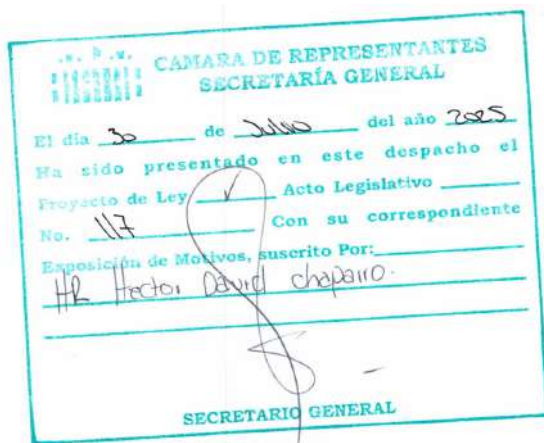 CAMARA DE REPRESENTANTES
SECRETARÍA GENERAL
El día 30 de Julio del año 2025
Ha sido presentado en este despacho el
Proyecto de Ley ✓ Acto Legislativo
No. 117 Con su correspondiente
Exposición de Motivos, suscrito Por:
HR Hector David chaparro.
SECRETARIO GENERAL